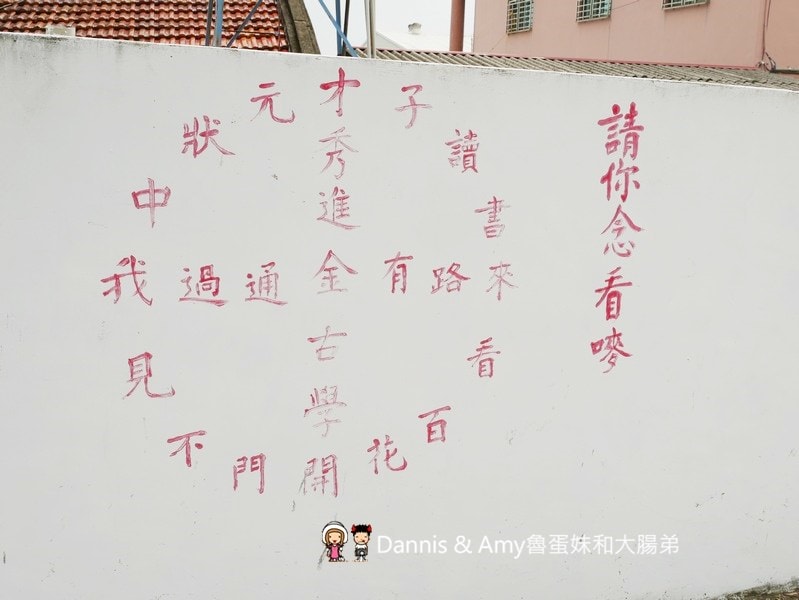 請你念看嘜
才子讀書來看百花開門不見我中狀元
秀進金古學
我過通金有路來
Dannis & Amy魯蛋妹和大腸弟